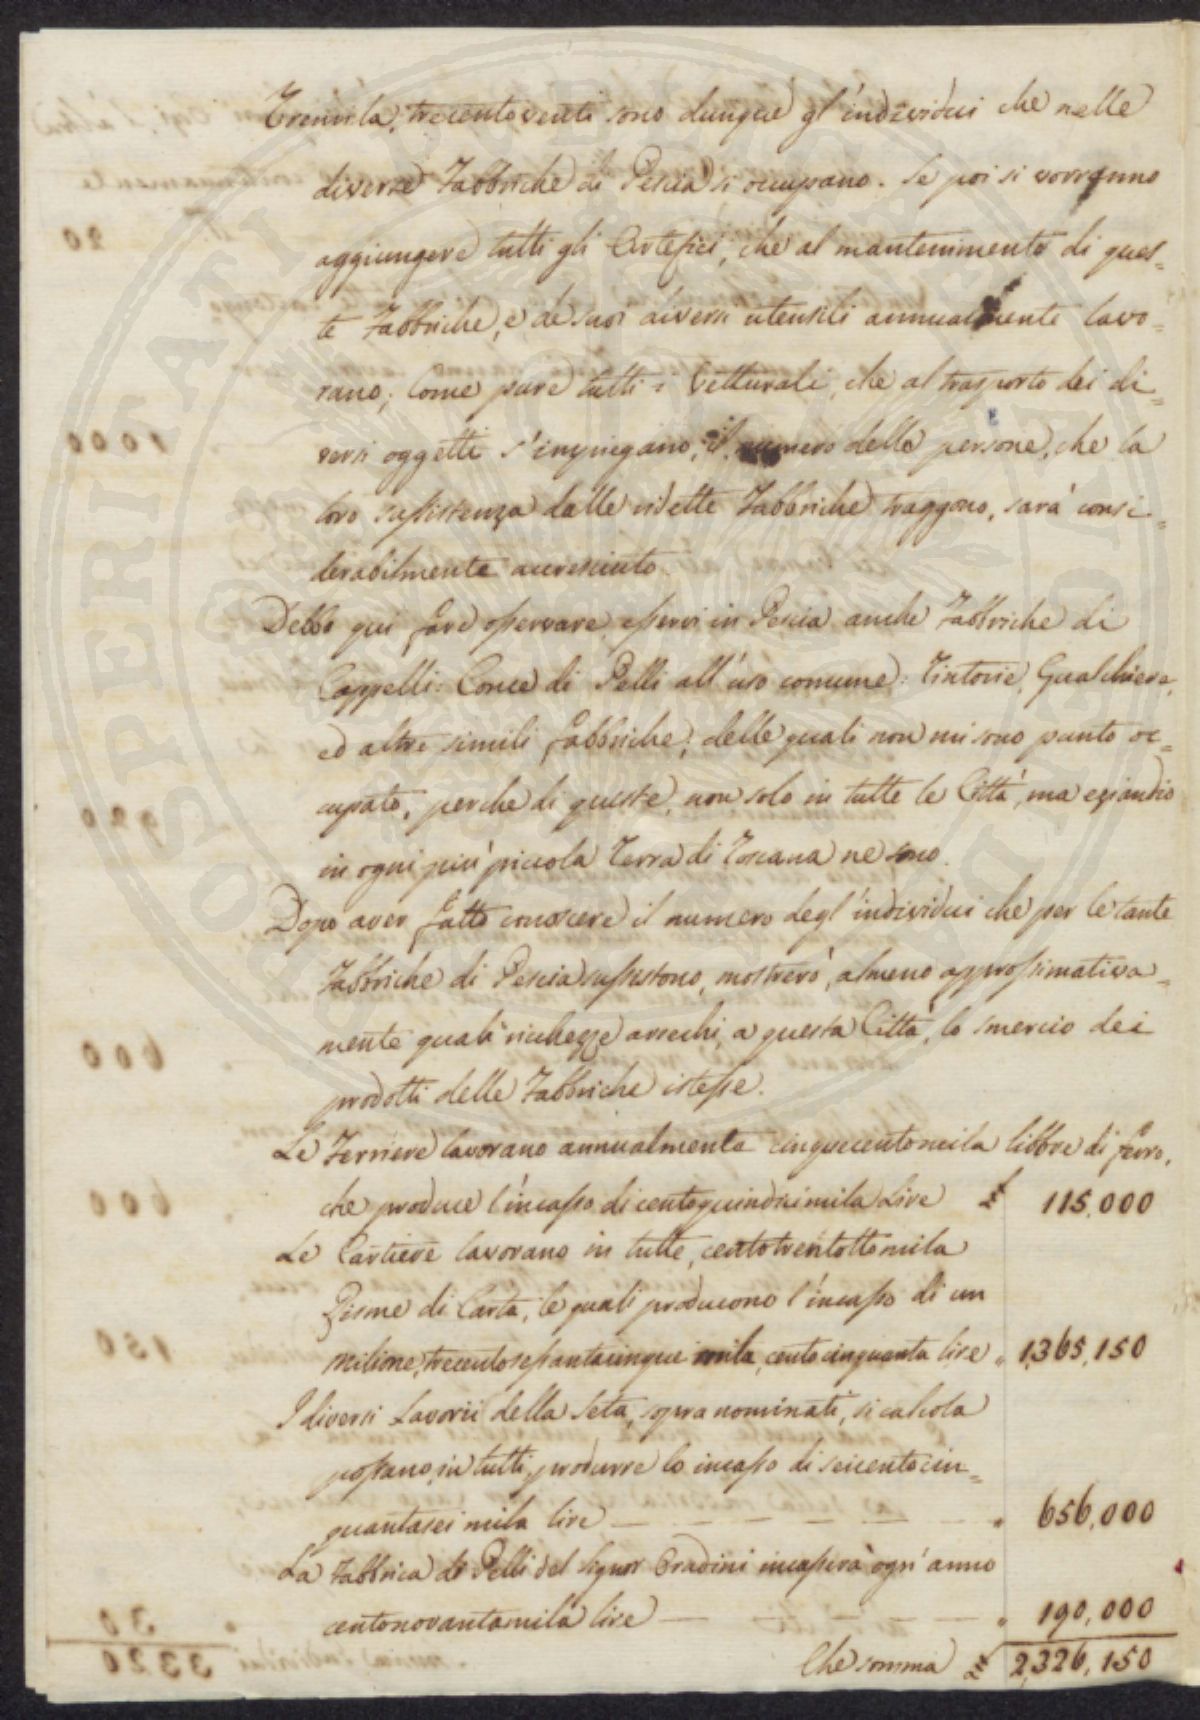 Tremila, trecentoventi sono dunque gl'individui che nelle
diverse Fabbriche di Pescia si occupano. Se poi si vorranno
aggiungere tutti gli Artefici, che al mantenimento di ques=
te Fabbriche, e de suoi diversi utensili annualmente lavo=
rano; Come pure tutti i Vetturali, che al trasporto dei di=
versi oggetti s'impiegano, il numero delle persone, che la
loro sussistenza dalle ridette Fabbriche traggono, sarà consi=
derabilmente accresciuto.
Debbo qui fare osservare esservi in Pescia anche Fabbriche di
Cappelli: Conce di Pelli all'uso comune: Tintorie, Gualchiere,
ed altre simili fabbriche; delle quali non mi sono punto oc=
cupato, perche di queste, non solo in tutte le Città, ma eziandio
in ogni più piccola Terra di Toscana ne sono.
Dopo aver fatto conoscere il numero degl'individui che per le tante
Fabbriche di Pescia sussistono, mostrerò, almeno approssimativa=
mente quali ricchezze arrechi, a questa Città, lo smercio dei
prodotti delle Fabbriche istesse.
Le Ferriere lavorano annualmente cinquecentomila libbre di ferro,
che produce l'incasso di centoquindicimila Lire 115,000
Le Cartiere lavorano in tutte, centotrentottomila
Risme di Carta, le quali producono l'incasso di un
milione, trecentosessantacinque mila, centocinquanta lire „ 1,365,150
I diversi Lavorii della Seta, sopra nominati, si calcola
possano, in tutti, produrre lo incasso di seicentocin=
quantasei mila lire — — — — — — „ 656,000
La Fabbrica di Pelli del Signor Oradini incasserà ogn'anno
centonovantamila lire — — — — — „ 190,000
Che somma 2,326,150
PROSPERITATI PUBLICAE AUGENDAE